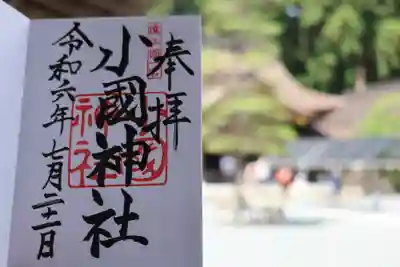 奉拝
小國神社
令和六年 七月二十一日